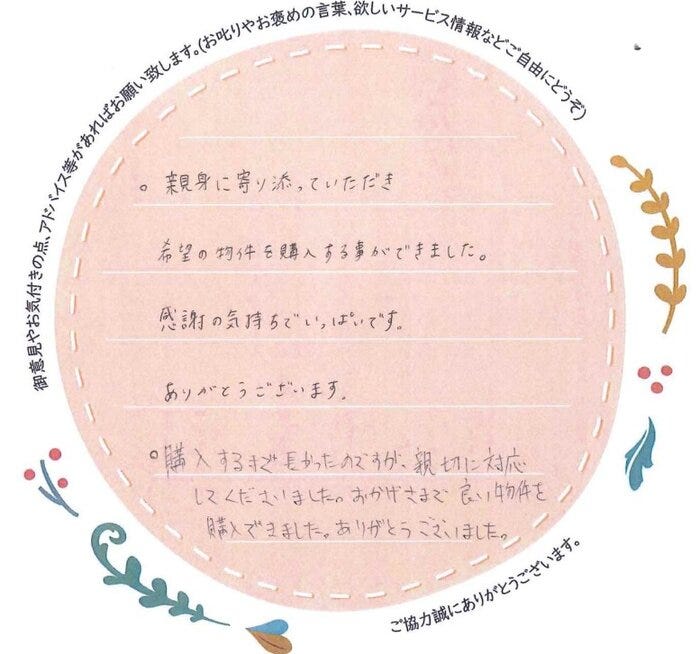 御意見やお気付きの点、アドバイス等があればお願い致します。(お叱りやお褒めの言葉、欲しいサービス情報などご自由にどうぞ)
○ 親身に寄り添っていただき
希望の物件を購入する事ができました。
感謝の気持ちでいっぱいです。
ありがとうございます。
○購入するまで長かったのですが、親切に対応
してくださいました。おかげさまで良い物件を
購入できました。ありがとうございました。
ご協力誠にありがとうございます。